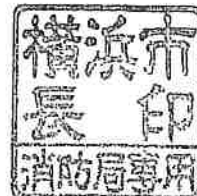 横浜市
長印
消防局専用